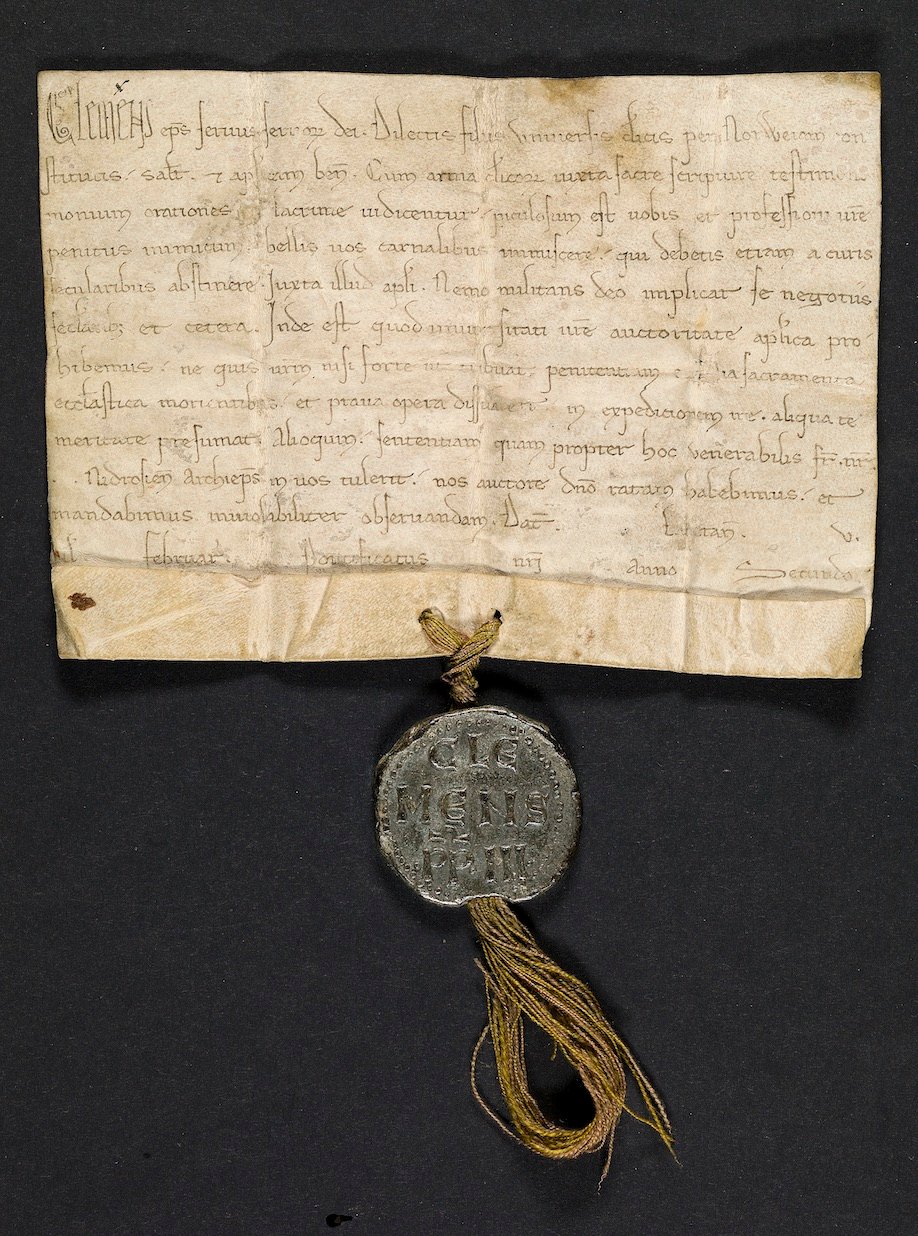 Clemens eps seruus seruor dei. Dilectis filiis uniuersis clicis per Norweiam con
stitutis. salt. et aplicam ben. Cum arma clicor iuxta sacre scripture testimo
monium orationes lacrime iudicentur. piculosum est uobis et professioni ure
penitus inimicum. bellis uos carnalibus immiscere. qui debetis etiam a curis
secularibus abstinere. Iuxta illud apli. Nemo militans deo implicat se negotiis
seclarib; et cetera. Inde est quod uniuersitati ure auctoritate aplica pro
hibemus. ne quis urm nisi forte ut tribuat penitentiam et alia sacramenta
ecclastica morientibus. et praua opera dissuaderi. in expeditionem ire. aliqua te
meritate presumat. Alioquin. sententiam quam propter hoc venerabilis fr. nr.
Nidrosien Archieps in uos tulerit. nos auctore dno ratam habebimus. et
mandabimus inuiolabiliter obseruandam. Dat. Lateran. V.
kl februar. Pontificatus nri Anno Secundo
CLE
MENS
PP III